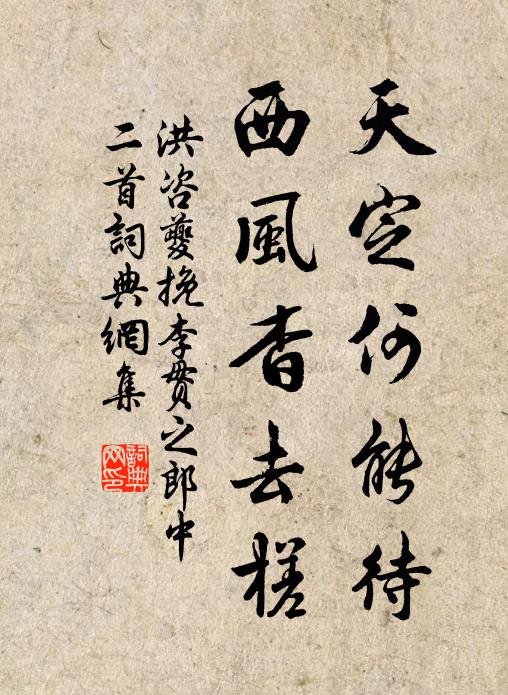 天定何能待
西風杳去槎
洪咨夔挽李貫之郎中
二首詞典網集
詞典网印